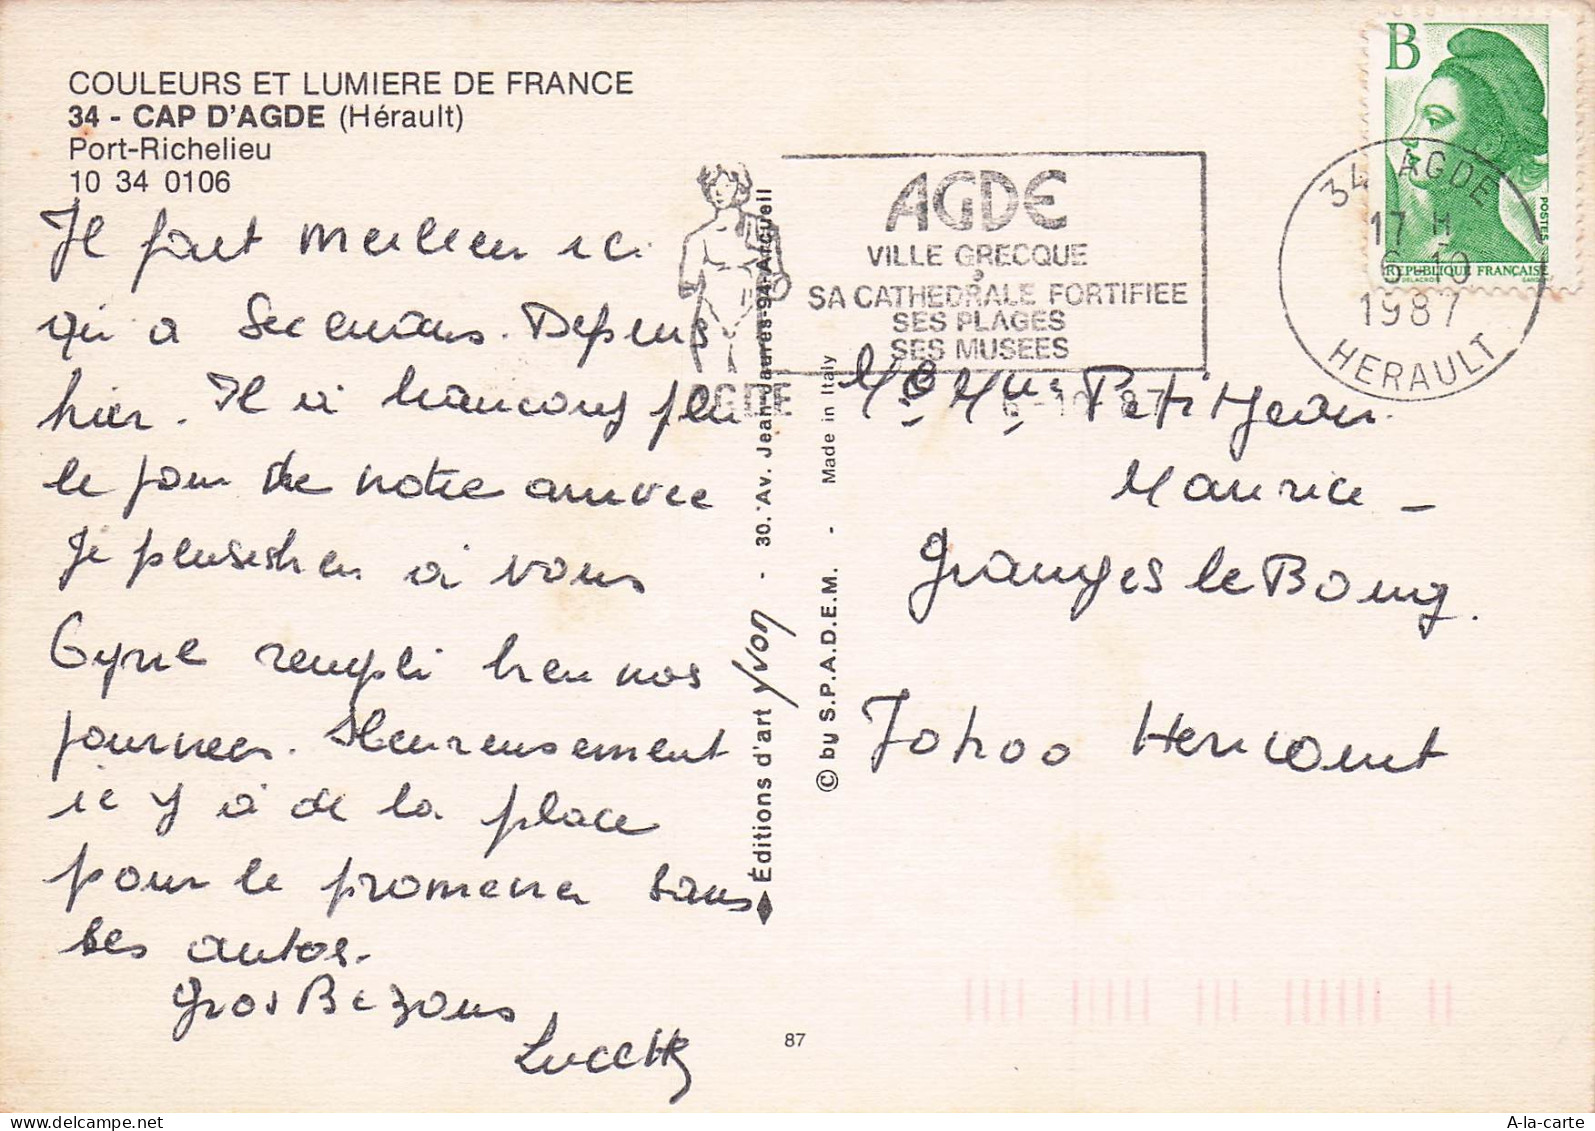 COULEURS ET LUMIERE DE FRANCE
34 - CAP D'AGDE (Hérault)
Port-Richelieu
10 34 0106
Il fait meilleur ici
qu'a Secenans. Depuis
hier. Il à beaucoup plu
le jour de notre arrivée
Je plusisheu à vous
Cyril rempli bien nos
journees. Heureusement
ic y à de la place
pour le promener sans
ses autos.
Gros Bezous
Lucette
Éditions d'art yvon - 30. Av. Jean-Jaurès-94-Arcueil
© by S.P.A.D.E.M. - Made in Italy
87
AGDE
AGDE
VILLE GRECQUE
SA CATHEDRALE FORTIFIEE
SES PLAGES
SES MUSEES
6-10 87
B
POSTES
REPUBLIQUE FRANÇAISE
DELACROIX GANDON
34 AGDE
17 H
6-10
1987
HERAULT
Mr & Mme PetitJean
Maurice -
Granges le Bourg.
70400 Hericourt
A-la-carte